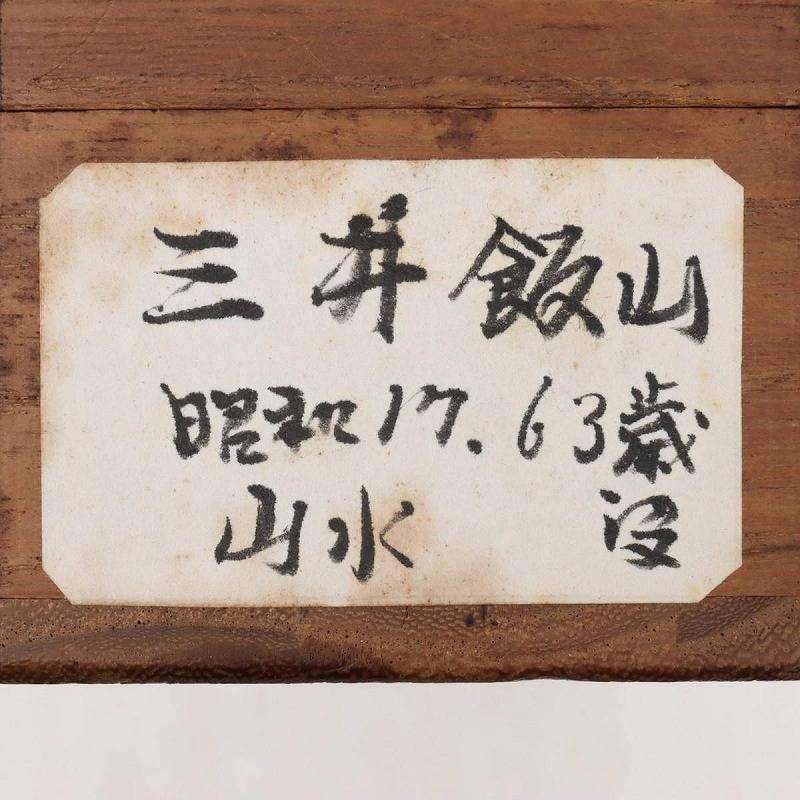 三井飯山
昭和17. 63歳
山水 没